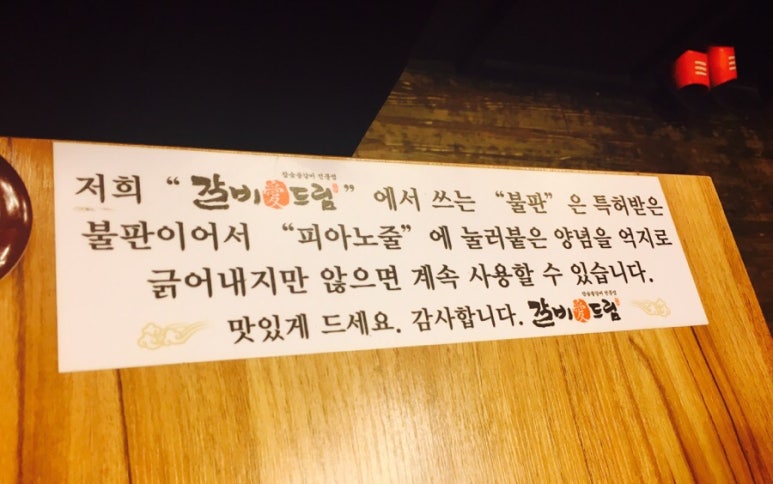 참숯왕갈비 전문점
저희 “갈비愛드림” 에서 쓰는 “불판” 은 특허받은
불판이어서 “피아노줄” 에 눌러붙은 양념을 억지로
긁어내지만 않으면 계속 사용할 수 있습니다.
맛있게 드세요. 감사합니다. 갈비愛드림